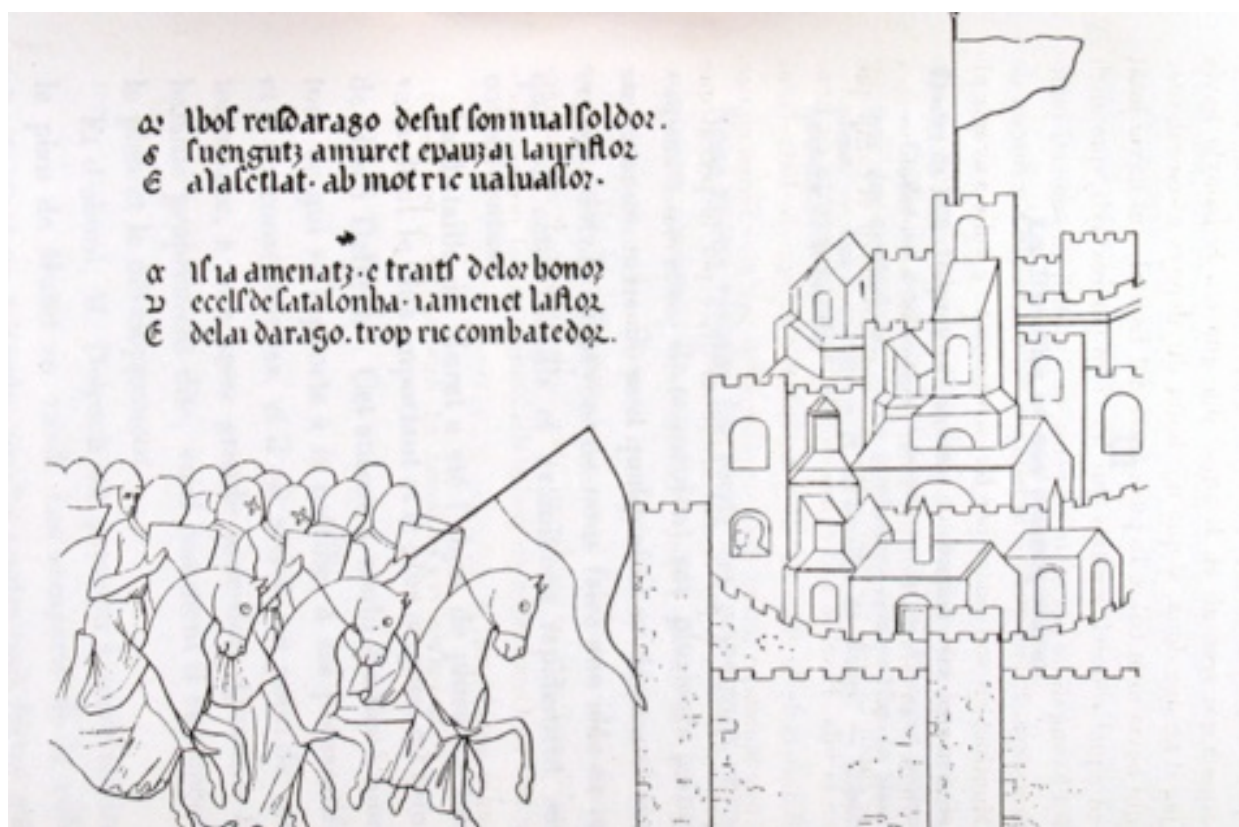 a lbos reis darago desus son mial soldor.
e s uengutz amuret e pauzai lauriflor
E alascflat. ab mot ric ualuassor.
a is ia amenatz. e traits delor honor
v eccels de Catalonha. i amenet laflor
E delai darago. trop ric combatedor.